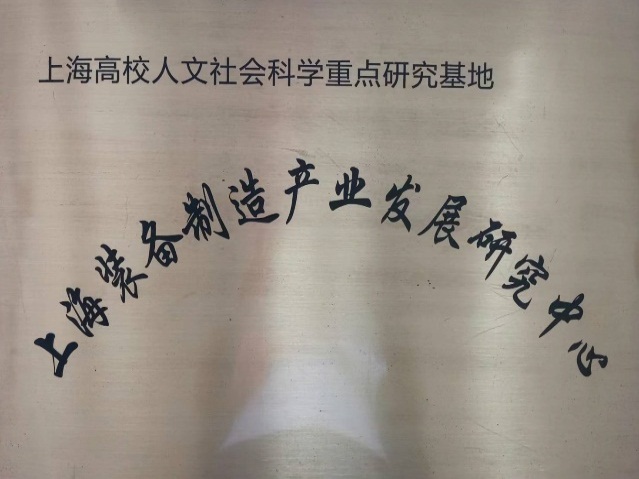 上海高校人文社会科学重点研究基地
上海装备制造产业发展研究中心